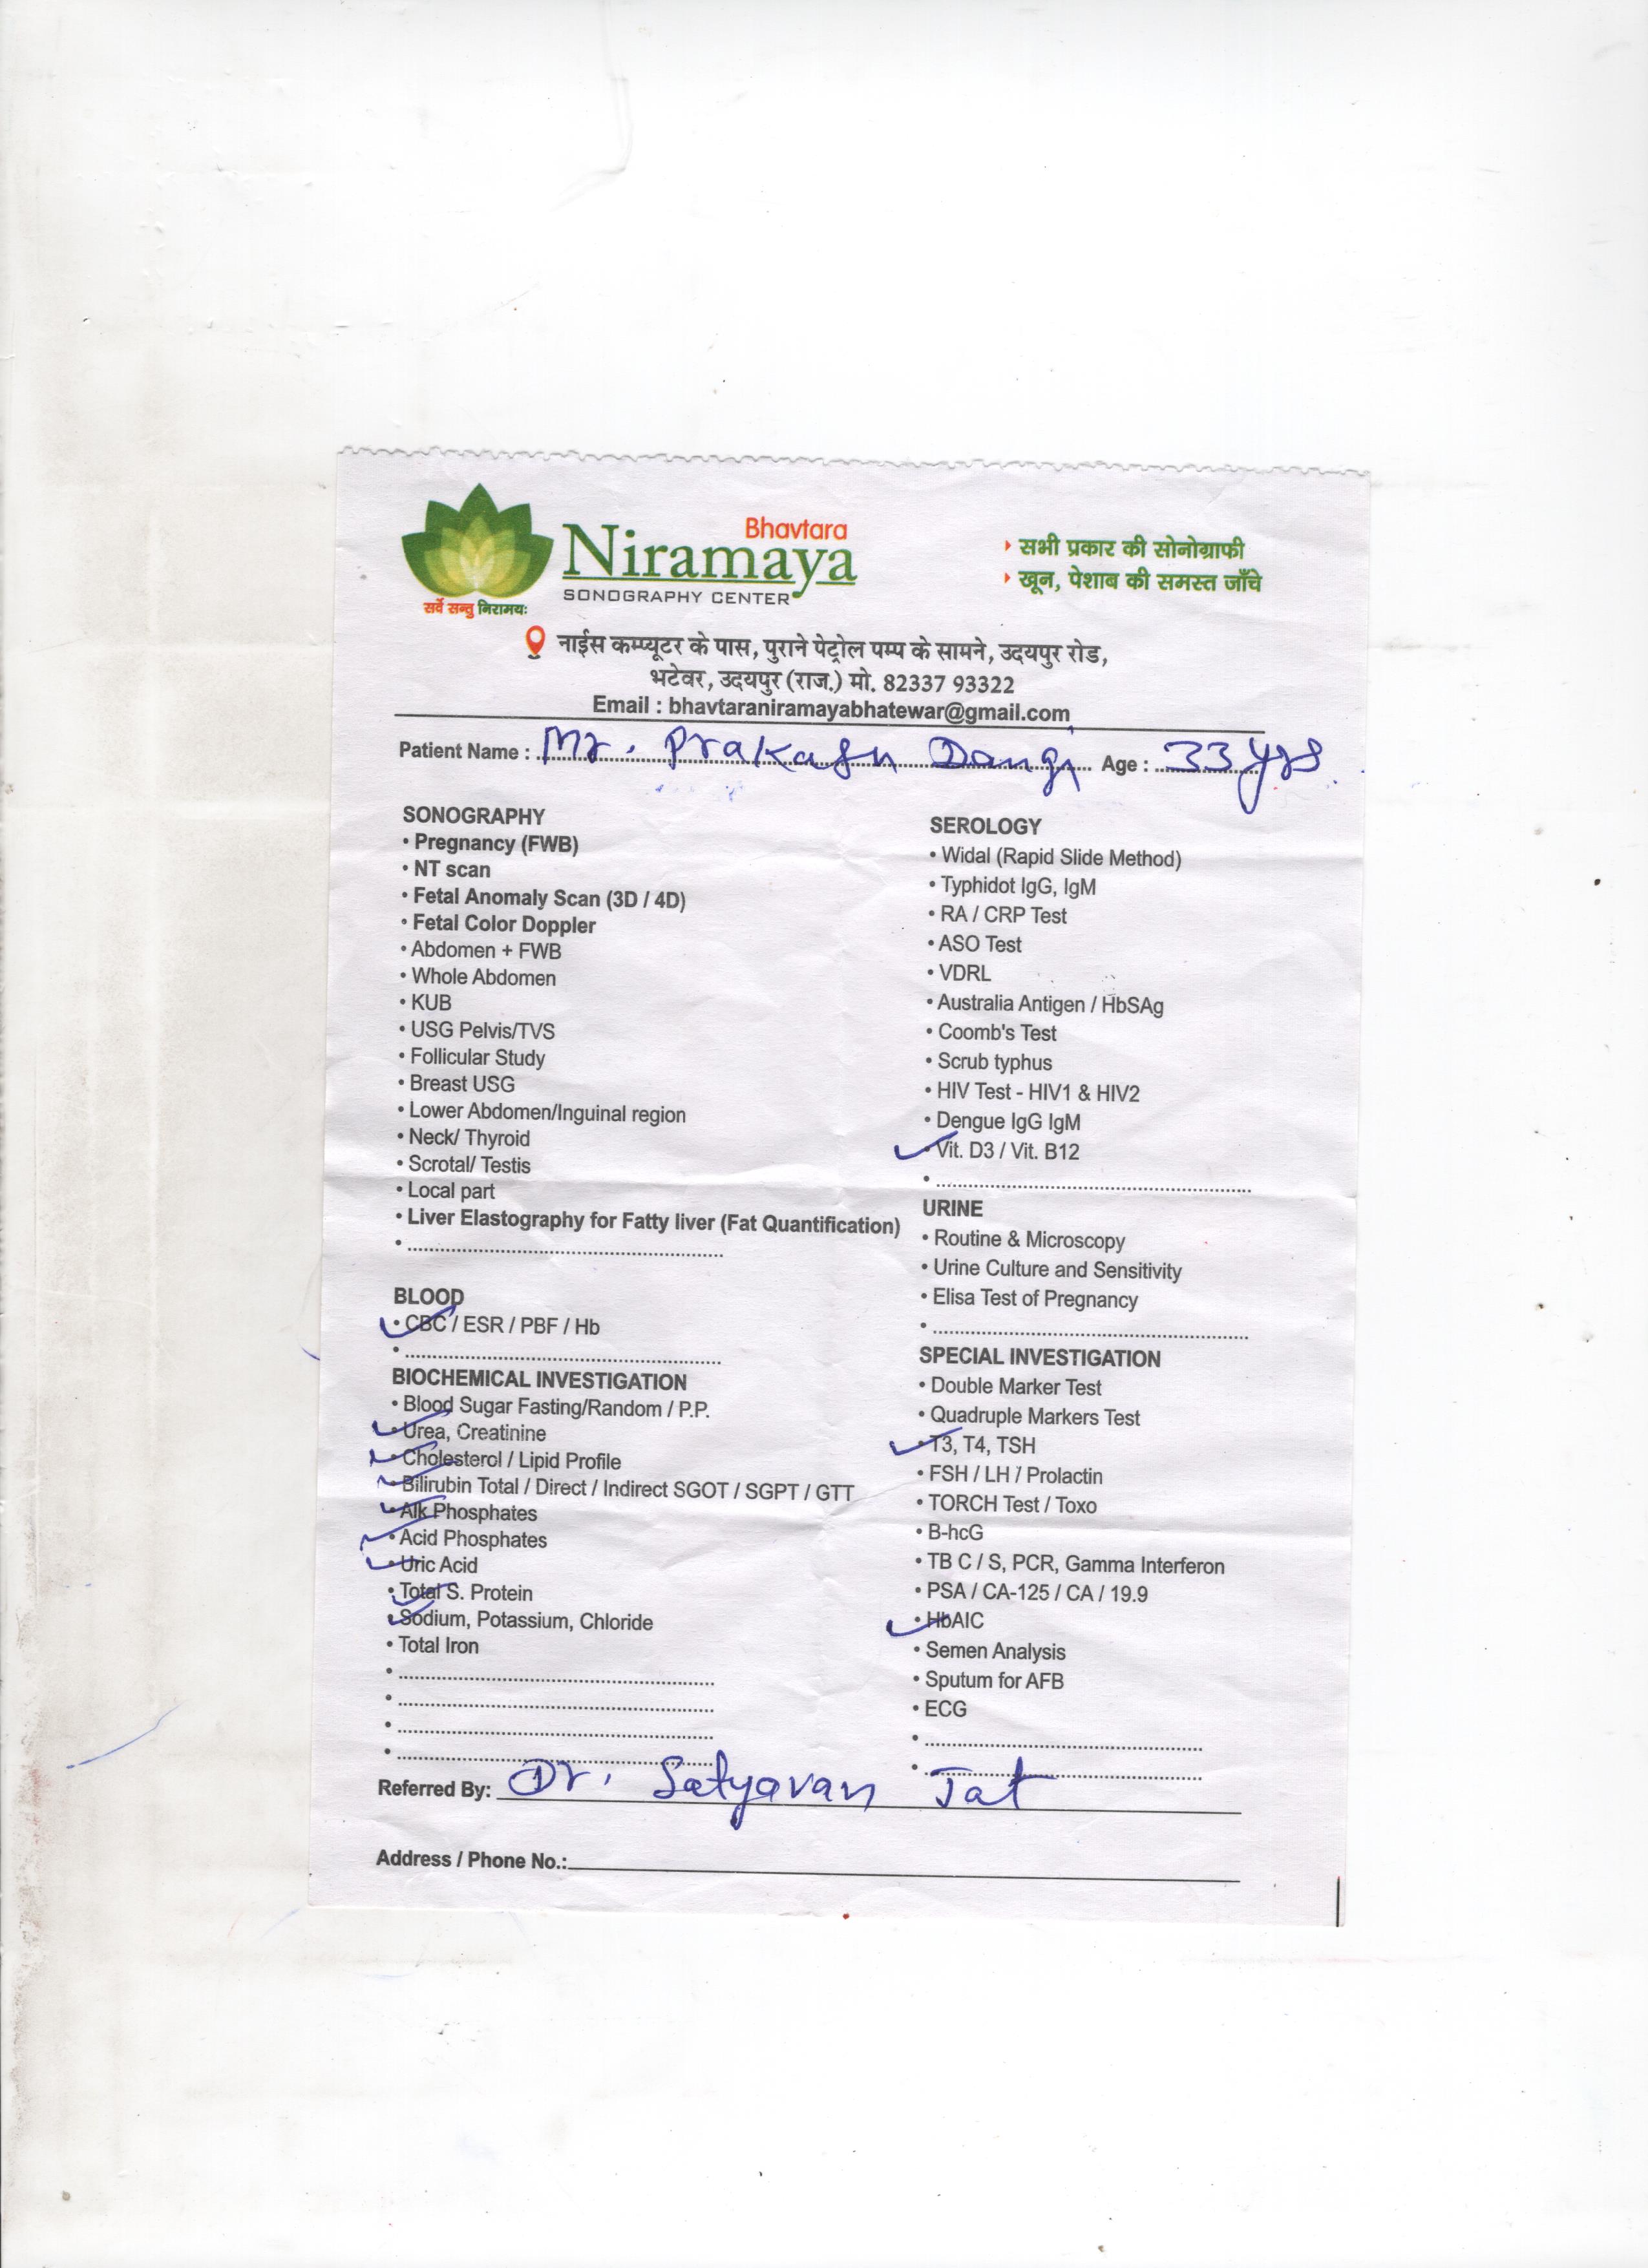 Bhavtara
Niramaya
SONOGRAPHY CENTER
सर्वे सन्तु निरामयः
सभी प्रकार की सोनोग्राफी
खून, पेशाब की समस्त जाँचे
नाईस कम्प्यूटर के पास, पुराने पेट्रोल पम्प के सामने, उदयपुर रोड,
भटेवर, उदयपुर (राज.) मो. 82337 93322
Email : bhavtaraniramayabhatewar@gmail.com
Patient Name : Mr. Prakash Dangi Age : 33 yrs.
SONOGRAPHY
• Pregnancy (FWB)
• NT scan
• Fetal Anomaly Scan (3D / 4D)
• Fetal Color Doppler
• Abdomen + FWB
• Whole Abdomen
• KUB
• USG Pelvis/TVS
• Follicular Study
• Breast USG
• Lower Abdomen/Inguinal region
• Neck/ Thyroid
• Scrotal/ Testis
• Local part
• Liver Elastography for Fatty liver (Fat Quantification)
BLOOD
• CBC / ESR / PBF / Hb
BIOCHEMICAL INVESTIGATION
• Blood Sugar Fasting/Random / P.P.
• Urea, Creatinine
• Cholesterol / Lipid Profile
• Bilirubin Total / Direct / Indirect SGOT / SGPT / GTT
• Alk Phosphates
• Acid Phosphates
• Uric Acid
• Total S. Protein
• Sodium, Potassium, Chloride
• Total Iron
SEROLOGY
• Widal (Rapid Slide Method)
• Typhidot IgG, IgM
• RA / CRP Test
• ASO Test
• VDRL
• Australia Antigen / HbSAg
• Coomb's Test
• Scrub typhus
• HIV Test - HIV1 & HIV2
• Dengue IgG IgM
• Vit. D3 / Vit. B12
URINE
• Routine & Microscopy
• Urine Culture and Sensitivity
• Elisa Test of Pregnancy
SPECIAL INVESTIGATION
• Double Marker Test
• Quadruple Markers Test
• T3, T4, TSH
• FSH / LH / Prolactin
• TORCH Test / Toxo
• B-hcG
• TB C / S, PCR, Gamma Interferon
• PSA / CA-125 / CA / 19.9
• HbAIC
• Semen Analysis
• Sputum for AFB
• ECG
Referred By: Dr. Satyavan Jat
Address / Phone No.: